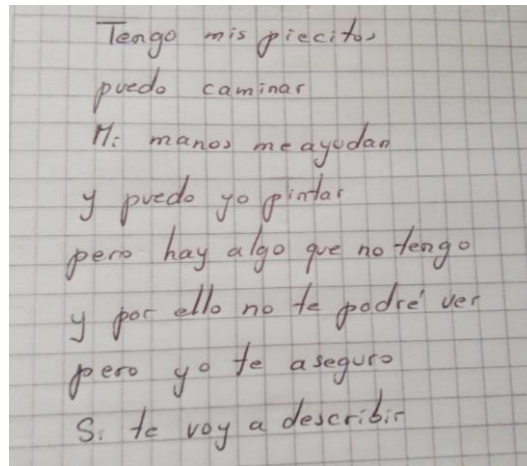 Tengo mis piecitos
puedo caminar
Mi manos me ayudan
y puedo yo pintar
pero hay algo que no tengo
y por ello no te podré ver
pero yo te aseguro
Si te voy a describir